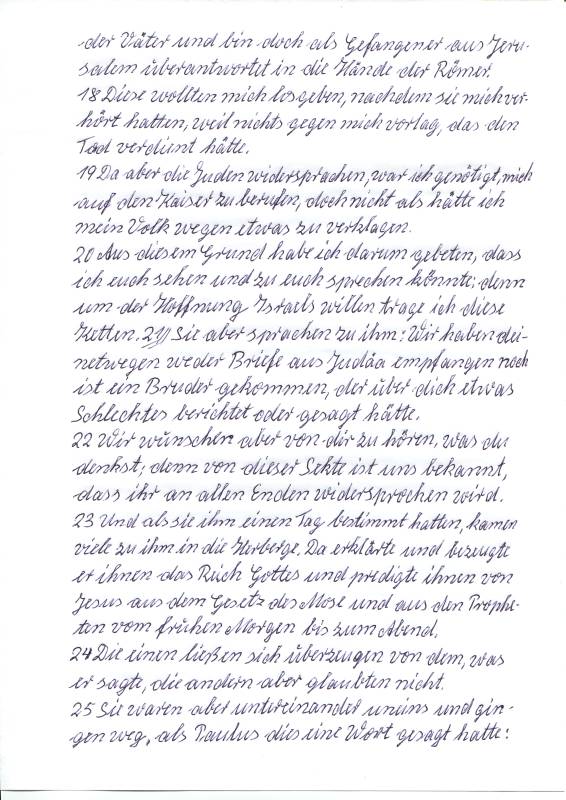 der Väter und bin doch als Gefangener aus Jeru-
salem überantwortet in die Hände der Römer.
18 Diese wollten mich losgeben, nachdem sie mich ver-
hört hatten, weil nichts gegen mich vorlag, das den
Tod verdient hätte.
19 Da aber die Juden widersprachen, war ich genötigt, mich
auf den Kaiser zu berufen, doch nicht als hätte ich
mein Volk wegen etwas zu verklagen.
20 Aus diesem Grund habe ich darum gebeten, dass
ich euch sehen und zu euch sprechen könnte; denn
um der Hoffnung Israels willen trage ich diese
Ketten. 21) Sie aber sprachen zu ihm: Wir haben dei-
netwegen weder Briefe aus Judäa empfangen noch
ist ein Bruder gekommen, der über dich etwas
Schlechtes berichtet oder gesagt hätte.
22 Wir wünschen aber von dir zu hören, was du
denkst; denn von dieser Sekte ist uns bekannt,
dass ihr an allen Enden widersprochen wird.
23 Und als sie ihm einen Tag bestimmt hatten, kamen
viele zu ihm in die Herberge. Da erklärte und bezeugte
er ihnen das Reich Gottes und predigte ihnen von
Jesus aus dem Gesetz des Mose und aus den Prophe-
ten vom frühen Morgen bis zum Abend.
24 Die einen ließen sich überzeugen von dem, was
er sagte, die andern aber glaubten nicht.
25 Sie waren aber untereinander uneins und gin-
gen weg, als Paulus dies eine Wort gesagt hatte: